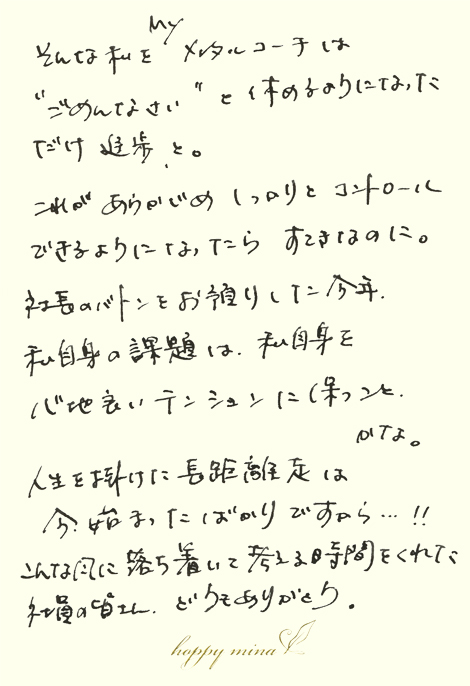 そんな私を My メンタルコーチは
"ごめんなさい" と 休めるようになった
だけ 進歩 と。
これが あらかじめ しっかりと コントロール
できるようになったら すてきなのに。
社長のバトンを お預りした 今年、
私自身の 課題は、私自身を
心地良い テンションに 保つこと、
かな。
人生を掛けた 長距離走は
今、始まったばかりですから…!!
こんな風に 落ち着いて 考える時間をくれた
社員の皆さん、どうもありがとう。
happy mina